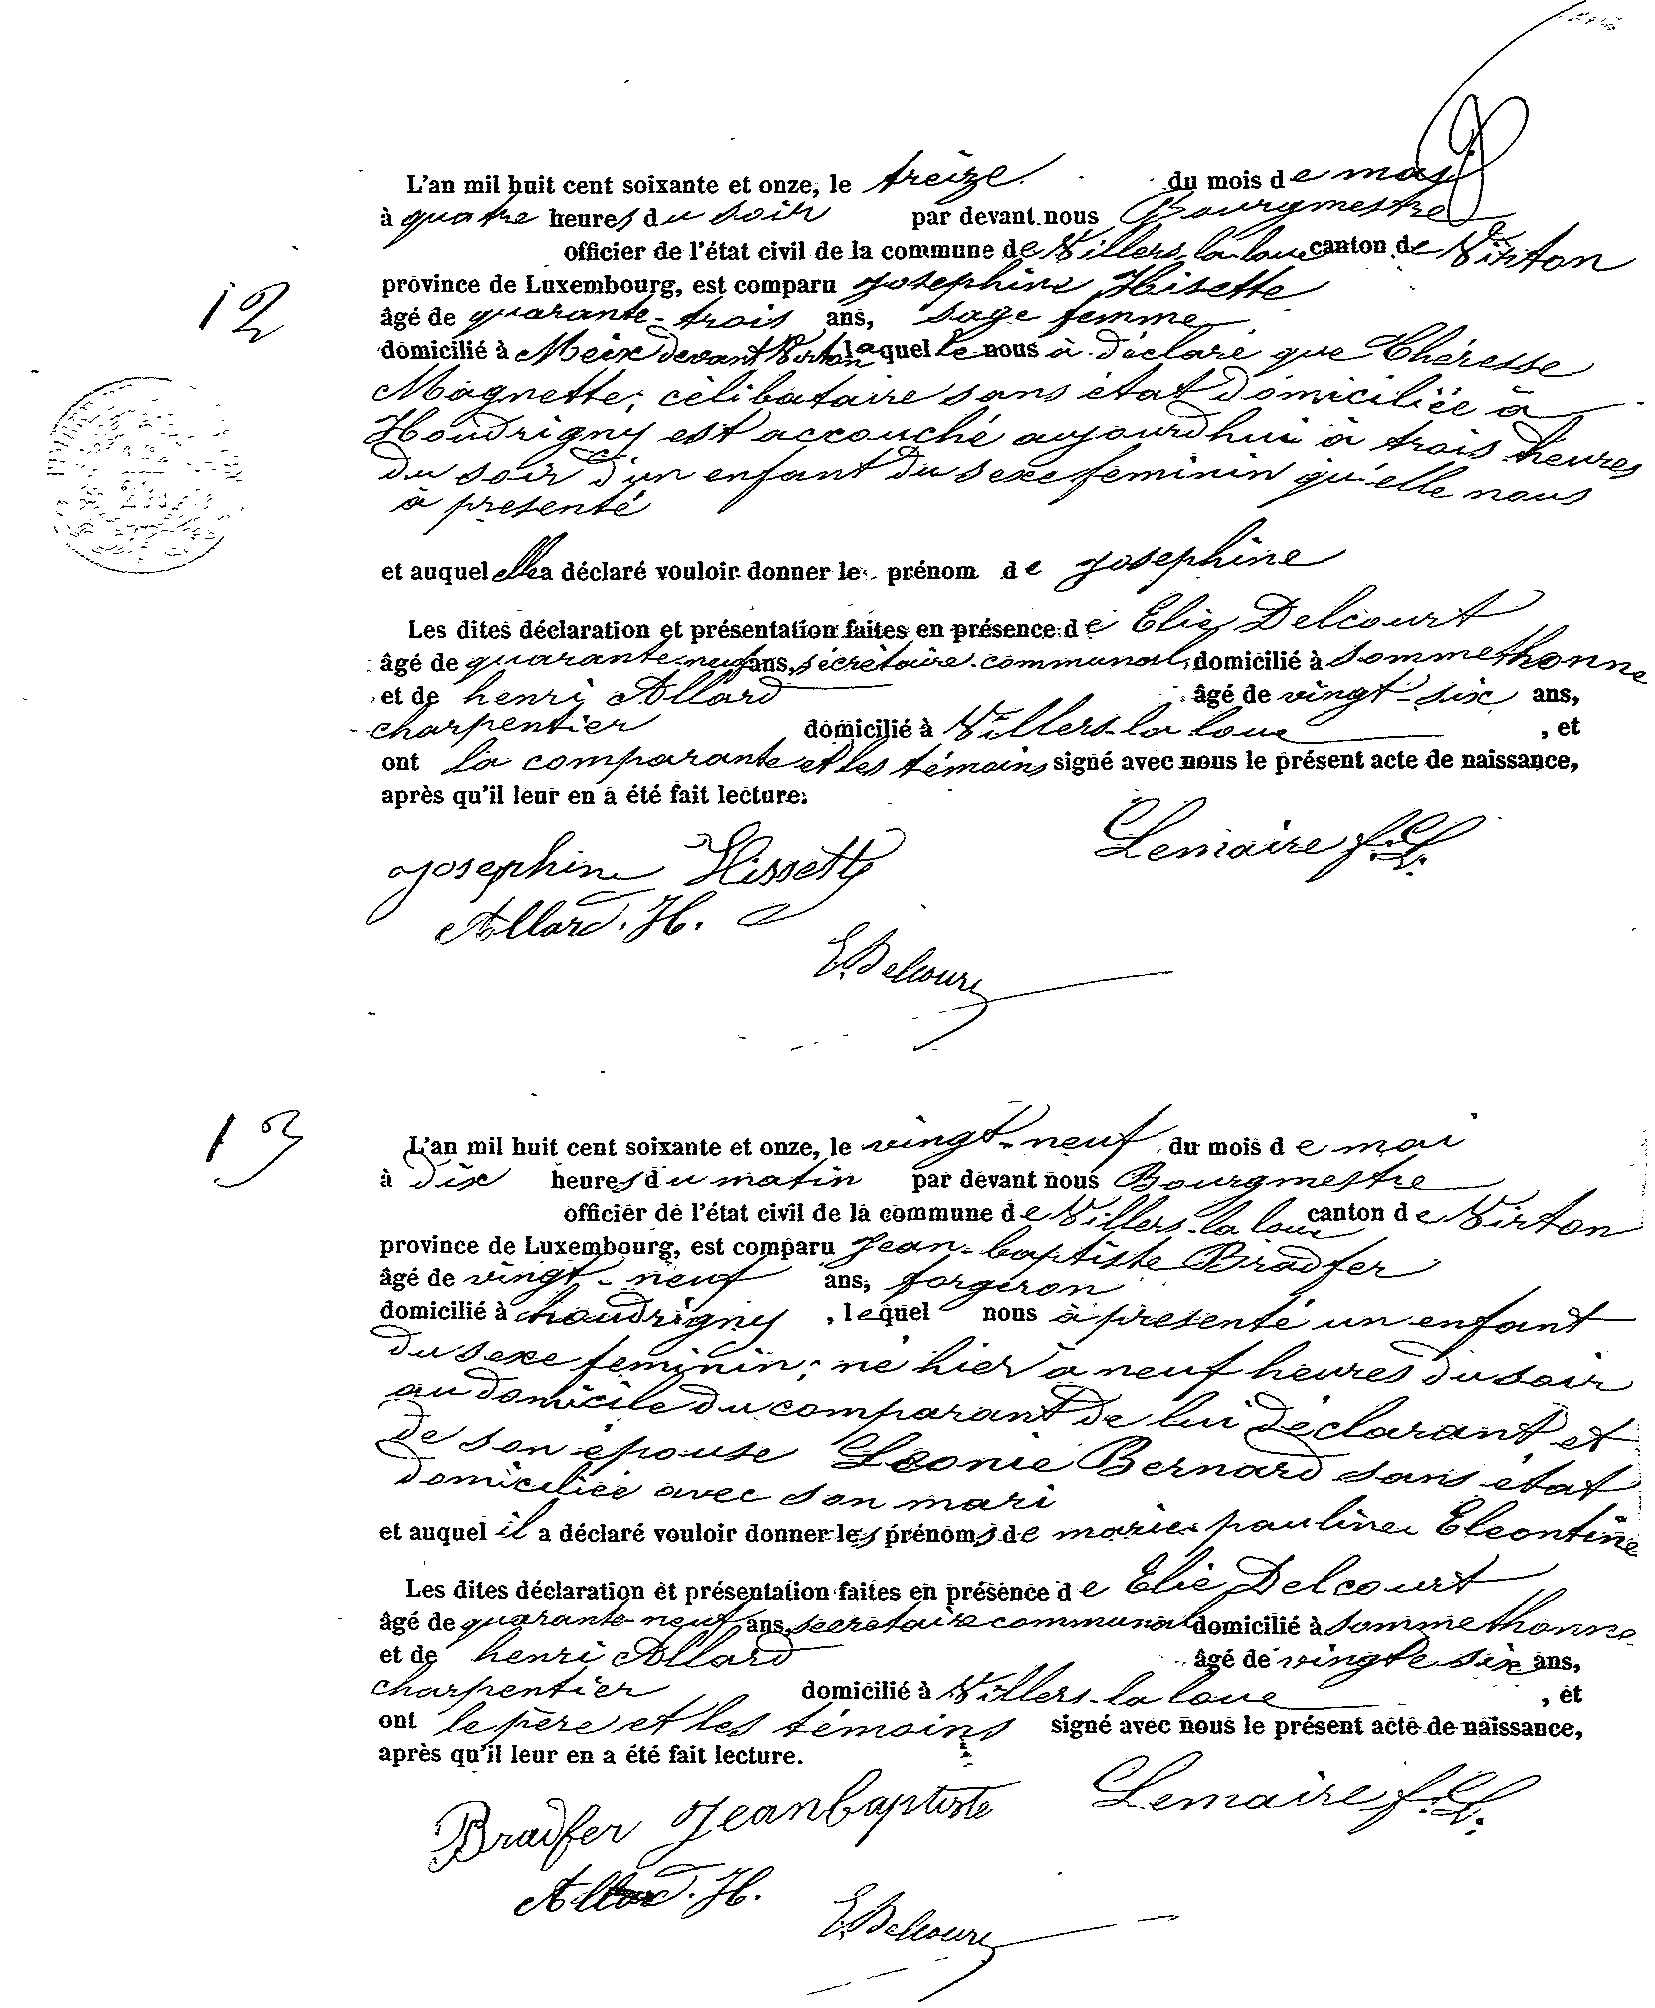 L'an mil huit cent soixante et onze, le treize du mois de may
à quatre heures du soir par devant nous Bourgmestre
officier de l'état civil de la commune de Villers-la-loue canton de Virton
province de Luxembourg, est comparu Josephine Hisette
12
âgé de quarante-trois ans, sage femme
domicilié à Meix devant Virton laquelle nous à déclaré que Théresse
Magnette, célibataire sans état domiciliée à
Houdrigny est accouché aujourd'hui à trois heures
du soir d'un enfant du sexe feminin qu'elle nous
à presenté
et auquel elle a déclaré vouloir donner le prénom de Josephine
Les dites déclaration et présentation faites en présence de Elie Delcourt
âgé de quarante-neuf ans, sécrétaire communal, domicilié à Sommethonne
et de henri Allard âgé de vingt-six ans,
charpentier domicilié à Villers-la loue , et
ont la comparante et les témoins signé avec nous le présent acte de naissance,
après qu'il leur en a été fait lecture.
Josephine Hissette Lemaire f.L.
Allard. H.
E. Delcourt
13
L'an mil huit cent soixante et onze, le vingt-neuf du mois de mai
à dix heures du matin par devant nous Bourgmestre
officier de l'état civil de la commune de Villers-la loue canton de Virton
province de Luxembourg, est comparu Jean-baptiste Bradfer
âgé de vingt-neuf ans, forgeron
domicilié à houdrigny , lequel nous à presenté un enfant
du sexe feminin; né hier à neuf heures du soir
au domicile du comparant de lui déclarant et
de son épouse Leonie Bernard sans état
domiciliée avec son mari
et auquel il a déclaré vouloir donner les prénoms de marie pauline Eleontine
Les dites déclaration et présentation faites en présence de Elie Delcourt
âgé de quarante-neuf ans, secretaire communal domicilié à Sommethonne
et de henri Allard âgé de vingte six ans,
charpentier domicilié à Villers-la loue , et
ont le père et les témoins signé avec nous le présent acte de naissance,
après qu'il leur en a été fait lecture.
Bradfer Jeanbaptiste Lemaire f.L.
Allard. H.
E. Delcourt